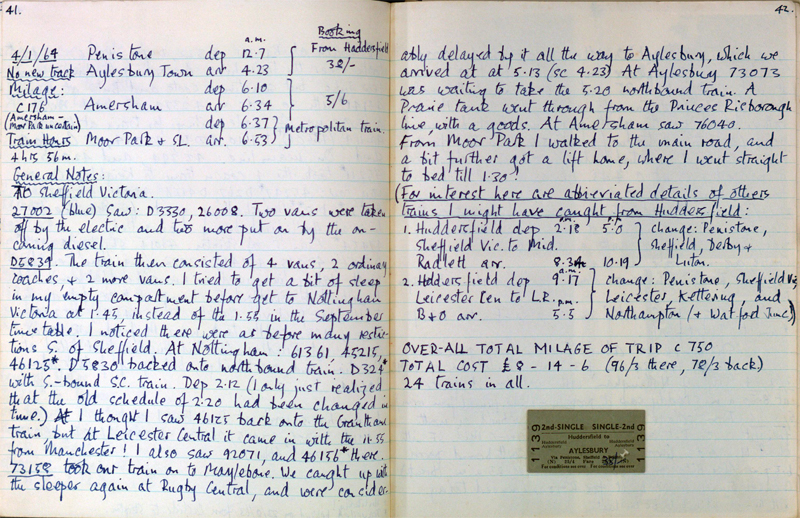 41.
a.m.
Booking
4/1/64 Penistone dep 12.7 From Huddersfield
No new track Aylesbury Town arr 4.23 32/-
Milage: dep 6.10
C176 Amersham arr 6.34 5/6
(Amersham - Moor Park uncertain) dep 6.37 Metropolitan train.
Train Hours Moor Park & SL. arr. 6.53
4 hrs 56 m.
General Notes:
To Sheffield Victoria.
27002 (blue) Saw: D3330, 26008. Two vans were taken
off by the electric and two more put on by the on-
coming diesel.
D5839. The train then consisted of 4 vans, 2 ordinary
coaches, & 2 more vans. I tried to get a bit of sleep
in my empty compartment before get to Nottingham
Victoria at 1.45, instead of the 1.55 in the September
timetable. I noticed there were as before many restric-
tions S. of Sheffield. At Nottingham: 61361, 45215,
46125*. D5830 backed onto northbound train. D324*
with S.-bound S.C. train. Dep 2.12 (I only just realized
that the old schedule of 2.20 had been changed in
time.) I thought I saw 46125 back onto the Grantham
train, but at Leicester Central it came in with the 11.55
from Manchester! I also saw 92071, and 46156* there.
73158 took our train on to Marylebone. We caught up with
the sleeper again at Rugby Central, and were consider-
42.
ably delayed by it all the way to Aylesbury, which we
arrived at at 5.13 (sc 4.23) At Aylesbury 73073
was waiting to take the 5.20 northbound train. A
Prarie tank went through from the Princes Risborough
line, with a goods. At Amersham saw 76040.
From Moor Park I walked to the main road, and
a bit further got a lift home, where I went straight
to bed till 1.30!
(For interest here are abbreviated details of others
trains I might have caught from Huddersfield:
1. Huddersfield dep 2.18 5.0 change: Penistone,
Sheffield Vic. to Mid. Sheffield, Derby &
Radlett arr. 8.34 10.19 Luton.
a.m.
2. Hddersfield dep 9.17 change: Penistone, Sheffield Vic,
Leicester Cen to LR. p.m. Leicester, Kettering, and
B&O arr. 5.5 Northampton (+ Watford Junc.)
OVER-ALL TOTAL MILAGE OF TRIP C 750
TOTAL COST £8-14-6 (96/3 there, 78/3 back)
24 trains in all.
1139
2nd-SINGLE SINGLE-2nd
Huddersfield to
Huddersfield Huddersfield
Aylesbury Aylesbury
AYLESBURY
Via Penistone, Sheffield
(N) (N)
For conditions see over For conditions see over
1139